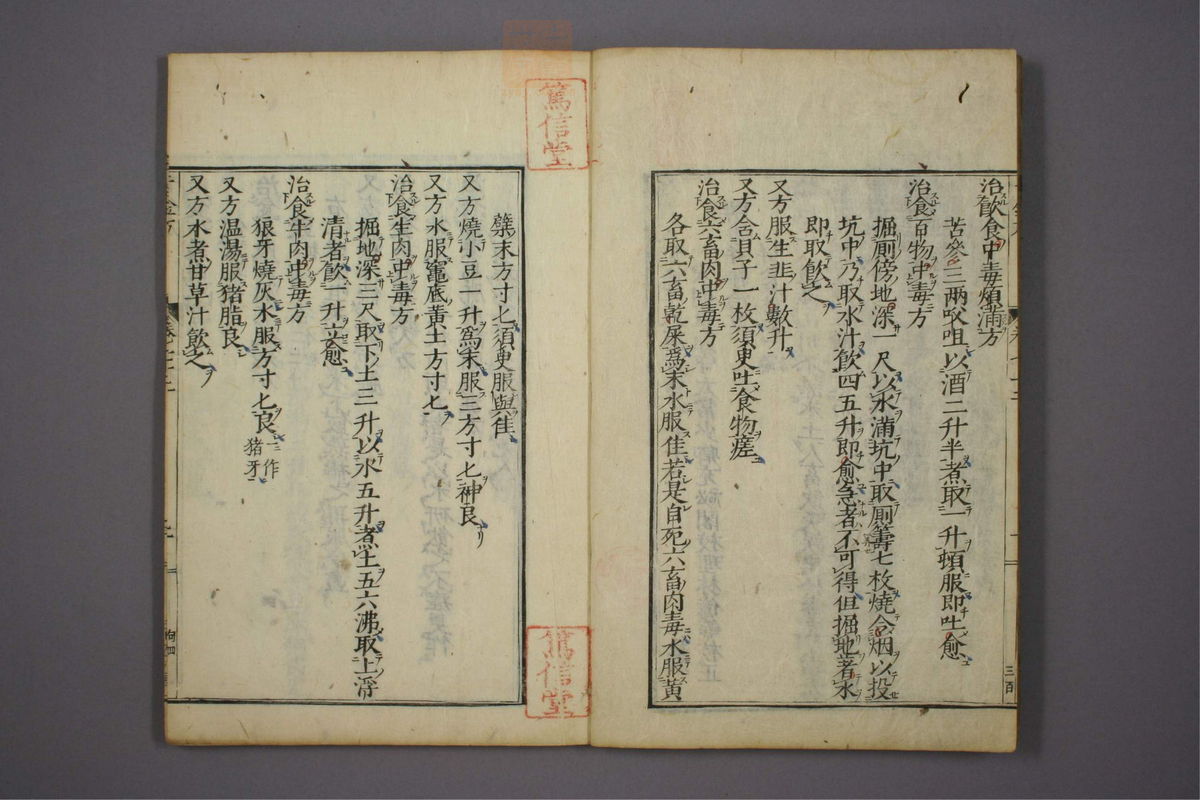 治飲食中毒煩滿方
苦參三兩㕮咀以酒二升半煮取一升頓服即吐愈
治食百物中毒方
掘厠傍地深一尺以水滿坑中取厠籌七枚燒令烟以投
坑中乃取水汁飲四五升即愈急者不可得但掘地著水
即取飲之
又方服生韭汁數升
又方含貝子一枚須臾吐食物瘥
治食六畜肉中毒方
各取六畜乾屎爲末水服佳若是自死六畜肉毒水服黃
篤信堂
篤信堂
蘗末方寸匕須臾服與佳
又方燒小豆一升爲末服三方寸匕神良
又方水服竈底黃土方寸匕
治食生肉中毒方
掘地深三尺取下土三升以水五升煮土五六沸取上浮
清者飲一升立愈
治食牛肉中毒方
狼牙燒灰水服方寸匕良一作猪牙
又方温湯服猪脂良
又方水煮甘草汁飲之